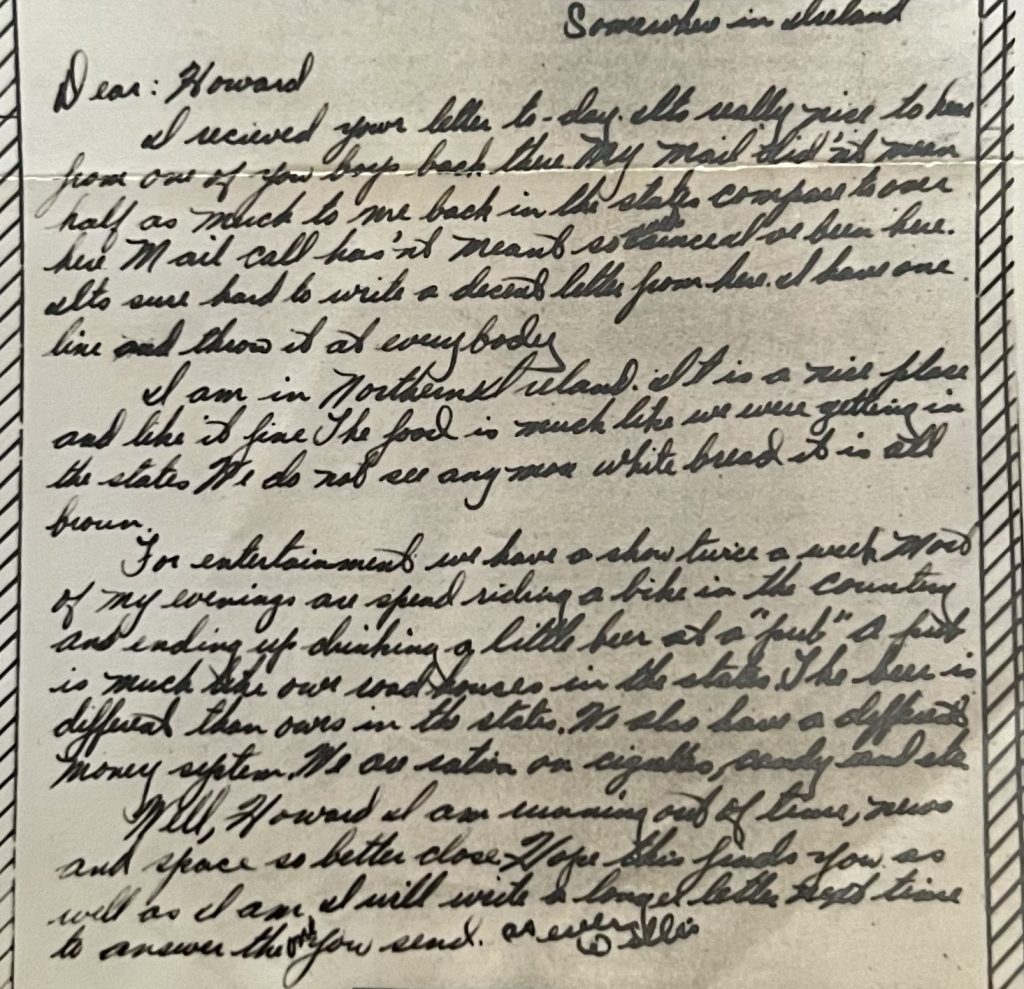 Somewher in Ireland
Dear: Howard
I recieved your letter to-day. Its really nice to hear
from one of you boys back there My Mail did'nt mean
half as much to me back in the states compare to over
here Mail call has'nt meant so much since I've been here.
Its sure hard to write a decent letter from here. I have one
line and throw it at everybody
I am in Northern Ireland. It is a nice place
and like it fine The food is much like we were getting in
the states We do not see any more white bread it is all
brown.
For entertainment we have a show twice a week Most
of my evenings are spend riding a bike in the country
and ending up drinking a little beer at a "pub" A pub
is much like our road houses in the states. The beer is
different than ours in the states. We also have a different
money system. We are ration on cigarettes, candy and etc
Well, Howard I am running out of time, news
and space so better close. Hope this finds you as
well as I am. I will write a longer letter next time
to answer the one you send. as ever